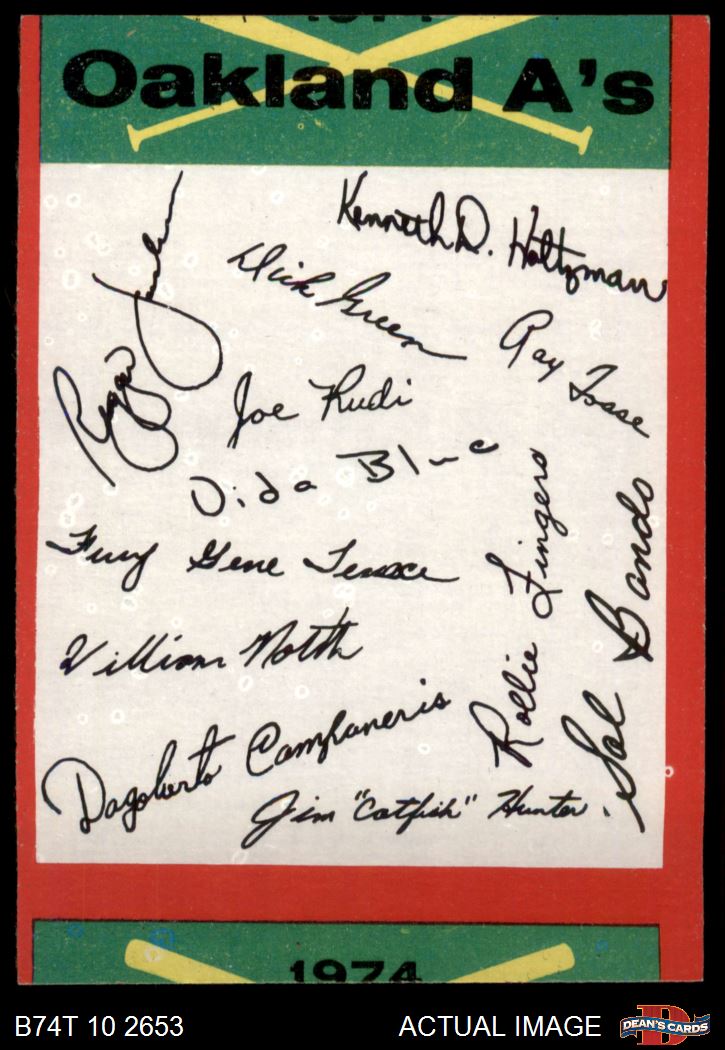 Oakland A's
Kenneth D. Holtzman
Dick Green
Reggie Jackson
Ray Fosse
Joe Rudi
Vida Blue
Fury Gene Tenace
Rollie Fingers
Sal Bando
William North
Dagoberto Campaneris
Jim "Catfish" Hunter.
1974
B74T 10 2653
ACTUAL IMAGE
D
DEAN'S CARDS